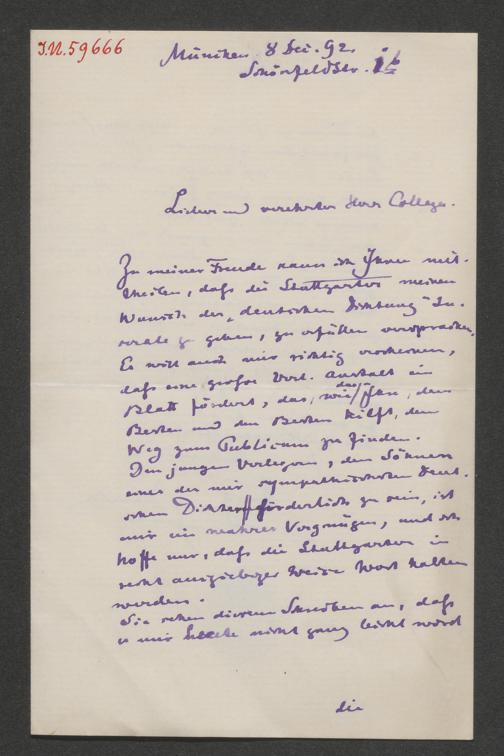 J.N. 59666
München 8 Dec. 92.
Schönfeldstr.
Lieber und verehrter Herr College.
Zu meiner Freude kann ich Ihnen mit-
theilen, daß die Stuttgarter meinen
Wunsch der „deutschen Dichtung" In-
serate zu geben, zu erfüllen versprachen.
Es will auch mir richtig erscheinen,
daß eine große Verl. Anstalt ein
Blatt fördert, das, wie das Ihre, dem
Besten und den Besten hilft, den
Weg zum Publicum zu finden.
Den jungen Verlegern, den Söhnen
eines der mir sympathischsten deut-
schen Dichter förderlich zu sein, ist
mir ein wahres Vergnügen, und ich
hoffe nur, daß die Stuttgarter in
recht ausgiebiger Weise Wort halten
werden.
Sie sehen diesem Schreiben an, daß
es mir heute nicht ganz leicht wird
die